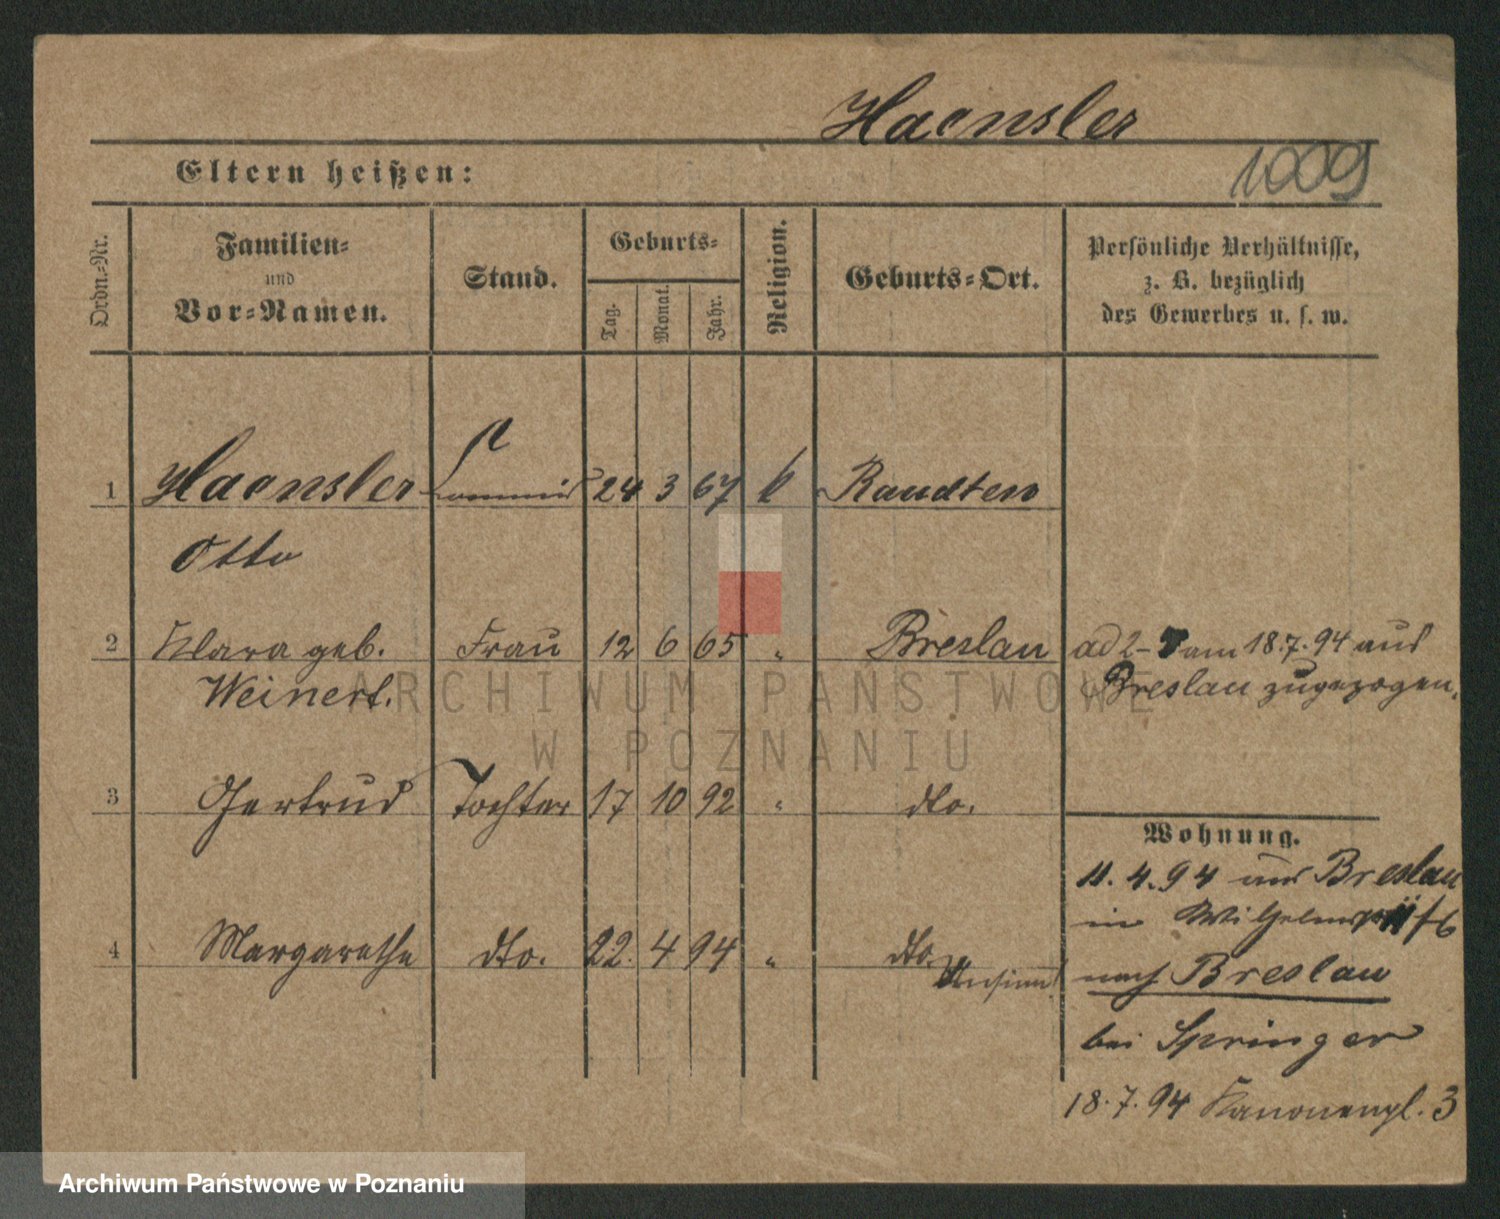 Haensler
Eltern heißen:
1009
Ordn.-Nr.
Familien-
und
Vor-Namen.
Stand.
Geburts-
Tag.
Monat.
Jahr.
Religion.
Geburts-Ort.
Persönliche Verhältnisse,
z. B. bezüglich
des Gewerbes u. s. w.
1 Haensler Commis 24 3 67 Raudten
Otto
2 Klara geb. Frau 12 6 65 " Breslau
Weinert.
ad 2- am 18.7.94 aus
Breslau zugezogen.
3 Gertrud Tochter 17 10 92 " dto.
Wohnung.
4 Margarethe dto. 22. 4 94 " dto.
11.4.94 aus Breslau
in
nach Breslau
bei Springer
18.7.94 Kanonenpl. 3
ARCHIWUM PAŃSTWOWE
W POZNANIU
Archiwum Państwowe w Poznaniu